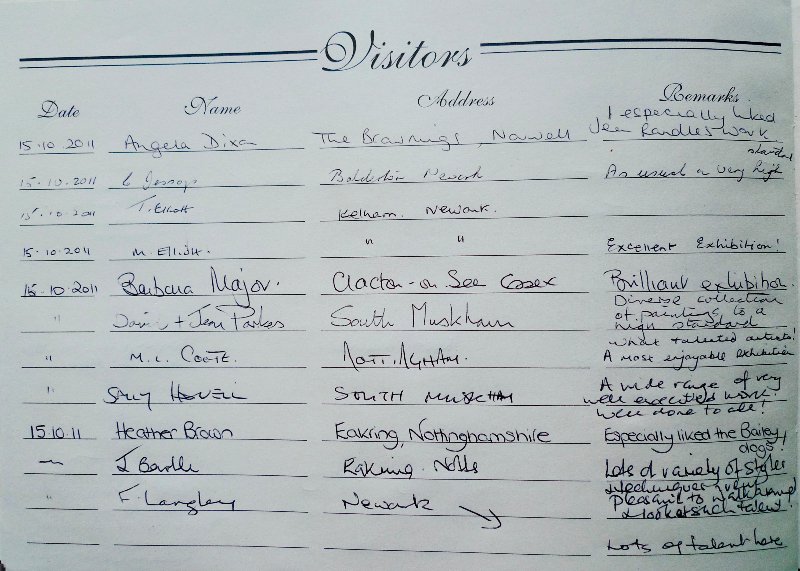 Visitors
Date Name Address Remarks
I especially liked
15.10.2011 Angela Dixon The Brownings, Norwell Jean Randles work
standard
15.10.2011 Balderton Newark As usual a very high
15.10.2011 T. Elliott Kelham. Newark.
15.10.2011 M. Elliott. " " Excellent Exhibition!
15.10.2011 Barbara Major. Clacton-on Sea Essex Brilliant exhibition.
Diverse collection
" + Jean Parkes South Muskham of painting to a
high standard
what talented artists!
" M. L. Coote. Nottingham. A most enjoyable exhibition
A wide range of very
" Sally South Muskham well executed work!
Well done to all!
15.10.11 Heather Brown Eakring, Nottinghamshire Especially liked the Bailey,
dogs
~ J Eakring. Notts Lots of variety of styles
& techniques & very
" F. Langley Newark Pleasant to walk around
& look at such talent!
Lots of talent here